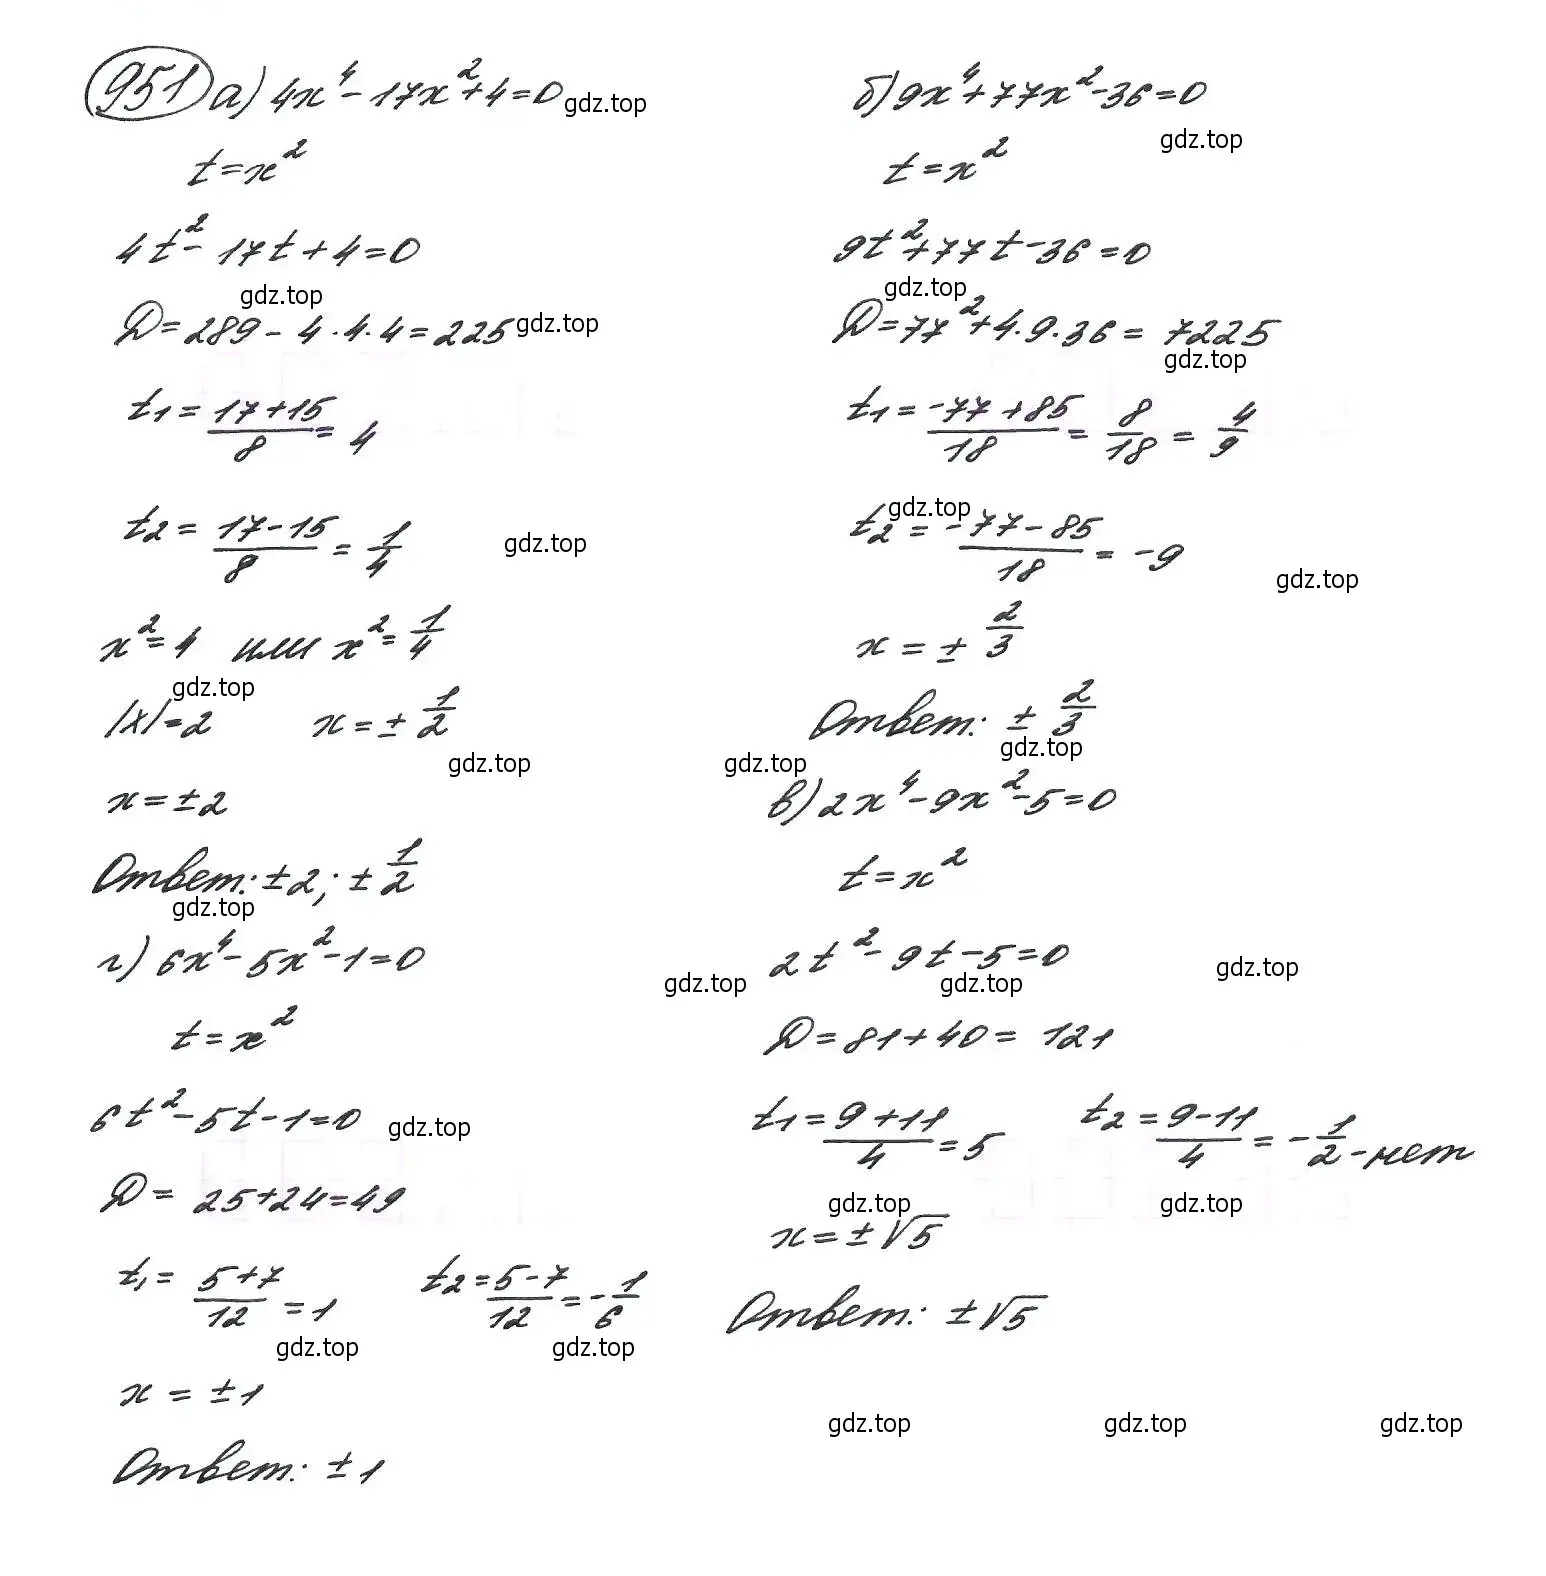 951 а) 4x⁴ - 17x² + 4 = 0 gdz.top
t = x²
4t² - 17t + 4 = 0
gdz.top
D = 289 - 4·4·4 = 225 gdz.top
t₁ = (17+15)/8 = 4
t₂ = (17-15)/8 = 1/4 gdz.top
x² = 4 или x² = 1/4
gdz.top
|x| = 2 x = ± 1/2
gdz.top
x = ±2
Ответ: ±2; ± 1/2
gdz.top
г) 6x⁴ - 5x² - 1 = 0
gdz.top
t = x²
6t² - 5t - 1 = 0 gdz.top
D = 25 + 24 = 49
t₁ = (5+7)/12 = 1 t₂ = (5-7)/12 = -1/6
gdz.top gdz.top
x = ±1
Ответ: ±1
б) 9x⁴ + 77x² - 36 = 0
gdz.top
t = x²
9t² + 77t - 36 = 0
gdz.top
D = 77² + 4·9·36 = 7225
gdz.top
t₁ = (-77+85)/18 = 8/18 = 4/9
gdz.top
t₂ = (-77-85)/18 = -9
gdz.top
x = ± 2/3
Ответ: ± 2/3
gdz.top gdz.top
в) 2x⁴ - 9x² - 5 = 0
t = x²
2t² - 9t - 5 = 0
gdz.top gdz.top
D = 81 + 40 = 121
t₁ = (9+11)/4 = 5 t₂ = (9-11)/4 = -1/2 - нет
gdz.top gdz.top
x = ±√5
Ответ: ±√5
gdz.top gdz.top gdz.top